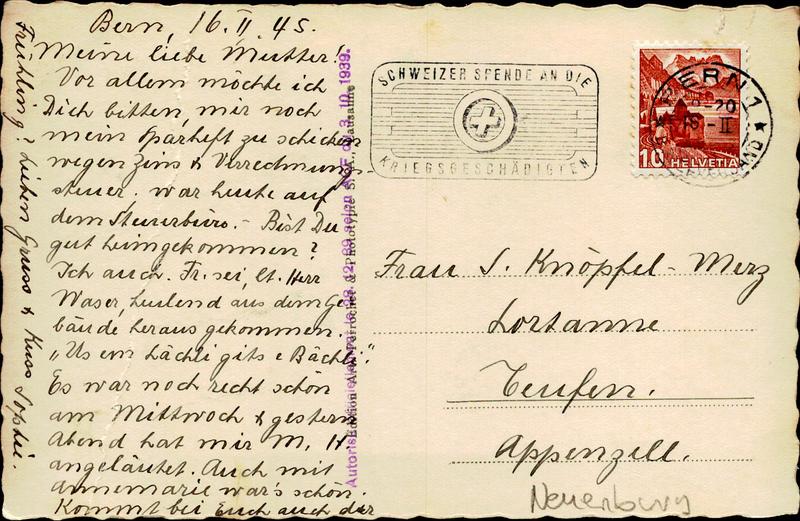 Bern, 16. II. 45.
Meine liebe Mutter!
Vor allem möchte ich
Dich bitten, mir noch
mein Sparheft zu schicken
wegen Zins & Verrechnungs-
steuer. war heute auf
dem Steuerbüro. – Bist Du
gut heimgekommen?
Ich auch. Fr. sei, lt. Herr
Waser, heulend aus dem Ge-
bäude heraus gekommen.
"Us em Lächli gits e Bächli."
Es war noch recht schön
am Mittwoch & gestern
Abend hat mir M. H
angeläutet. Auch mit
Annemarie war's schön.
Kommt bei Euch auch der
Frühling? Lieben Gruss & Kuss Sophie.
Autoris 28.12.39 selon ACF du 3.10.1939.
Edition Perrochet Phototypie S.A., Lausanne
SCHWEIZER SPENDE AN DIE
KRIEGSGESCHÄDIGTEN
BERN 1
-20
16 -II
10 HELVETIA
Frau S. Knöpfel-Merz
Lortanne
Teufen.
Appenzell.
Neuenburg